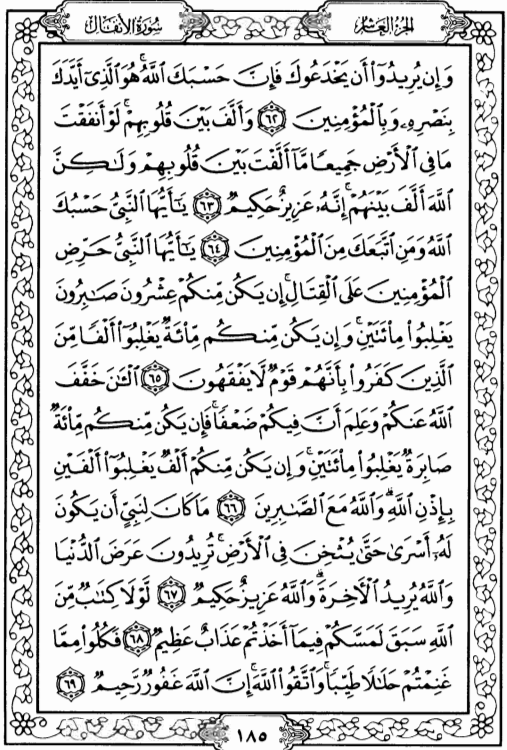 سُورَةُ الأَنفَال
الجُزءُ العَاشِرُ
وَإِن يُرِيدُوٓاْ أَن يَخْدَعُوكَ فَإِنَّ حَسْبَكَ ٱللَّهُۚ هُوَ ٱلَّذِىٓ أَيَّدَكَ
بِنَصْرِهِۦ وَبِٱلْمُؤْمِنِينَ ٦٢ وَأَلَّفَ بَيْنَ قُلُوبِهِمْۚ لَوْ أَنفَقْتَ
مَا فِى ٱلْأَرْضِ جَمِيعًا مَّآ أَلَّفْتَ بَيْنَ قُلُوبِهِمْ وَلَٰكِنَّ
ٱللَّهَ أَلَّفَ بَيْنَهُمْۚ إِنَّهُۥ عَزِيزٌ حَكِيمٌ ٦٣ يَٰٓأَيُّهَا ٱلنَّبِىُّ حَسْبُكَ
ٱللَّهُ وَمَنِ ٱتَّبَعَكَ مِنَ ٱلْمُؤْمِنِينَ ٦٤ يَٰٓأَيُّهَا ٱلنَّبِىُّ حَرِّضِ
ٱلْمُؤْمِنِينَ عَلَى ٱلْقِتَالِۚ إِن يَكُن مِّنكُمْ عِشْرُونَ صَٰبِرُونَ
يَغْلِبُواْ مِاْئَتَيْنِۚ وَإِن يَكُن مِّنكُم مِّاْئَةٌ يَغْلِبُوٓاْ أَلْفًا مِّنَ
ٱلَّذِينَ كَفَرُواْ بِأَنَّهُمْ قَوْمٌ لَّا يَفْقَهُونَ ٦٥ ٱلْـَٰٔنَ خَفَّفَ
ٱللَّهُ عَنكُمْ وَعَلِمَ أَنَّ فِيكُمْ ضَعْفًاۚ فَإِن يَكُن مِّنكُم مِّاْئَةٌ
صَابِرَةٌ يَغْلِبُواْ مِاْئَتَيْنِۚ وَإِن يَكُن مِّنكُمْ أَلْفٌ يَغْلِبُوٓاْ أَلْفَيْنِ
بِإِذْنِ ٱللَّهِۗ وَٱللَّهُ مَعَ ٱلصَّٰبِرِينَ ٦٦ مَا كَانَ لِنَبِىٍّ أَن يَكُونَ
لَهُۥٓ أَسْرَىٰ حَتَّىٰ يُثْخِنَ فِى ٱلْأَرْضِۚ تُرِيدُونَ عَرَضَ ٱلدُّنْيَا
وَٱللَّهُ يُرِيدُ ٱلْأَخِرَةَۗ وَٱللَّهُ عَزِيزٌ حَكِيمٌ ٦٧ لَّوْلَا كِتَٰبٌ مِّنَ
ٱللَّهِ سَبَقَ لَمَسَّكُمْ فِيمَآ أَخَذْتُمْ عَذَابٌ عَظِيمٌ ٦٨ فَكُلُواْ مِمَّا
غَنِمْتُمْ حَلَٰلًا طَيِّبًاۚ وَٱتَّقُواْ ٱللَّهَۚ إِنَّ ٱللَّهَ غَفُورٌ رَّحِيمٌ ٦٩
١٨٥